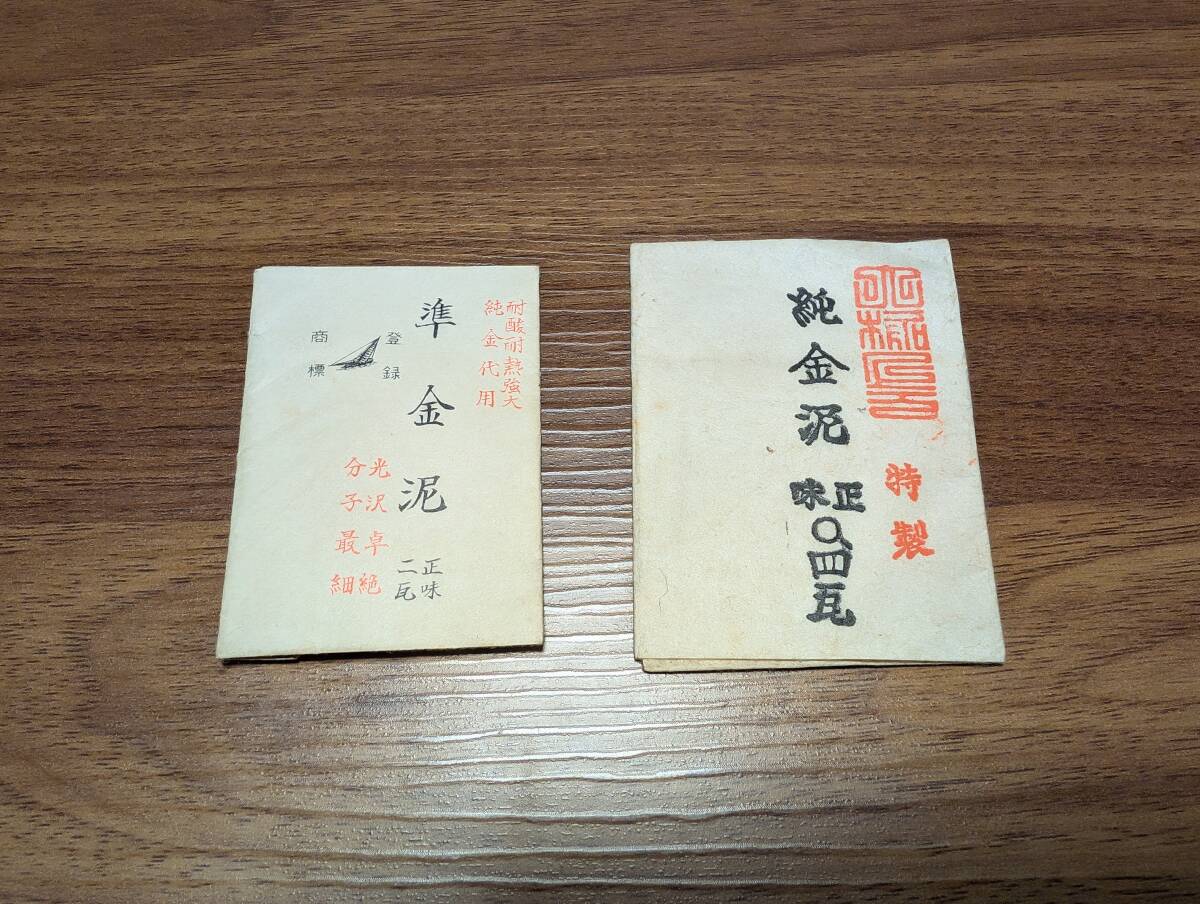 耐酸耐熱強大
純金代用
準金泥
正味
二瓦
登録
商標
光沢卓絶
分子最細
特製
純金泥
正味
0、四瓦